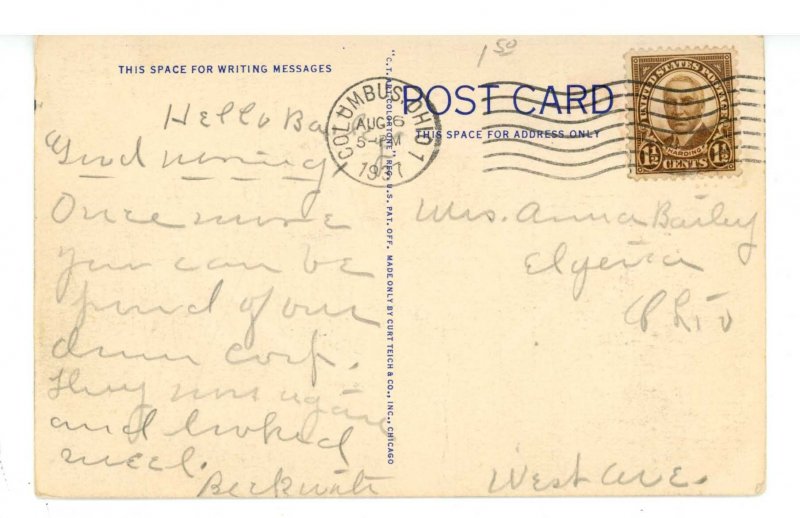 THIS SPACE FOR WRITING MESSAGES
Hello Ba
Good morning
Once more
you can be
proud of our
drum corp.
They won again
and looked
neet.
Beckwith
"C.T. ART-COLORTONE" REG. U.S. PAT. OFF. MADE ONLY BY CURT TEICH & CO., INC., CHICAGO
1 50
POST CARD
THIS SPACE FOR ADDRESS ONLY
COLUMBUS, OHIO 1
AUG 6
5-PM
1937
UNITED STATES POSTAGE
HARDING
1½ CENTS 1½
Mrs. Anna Bailey
Elyria
Ohio
West ave.